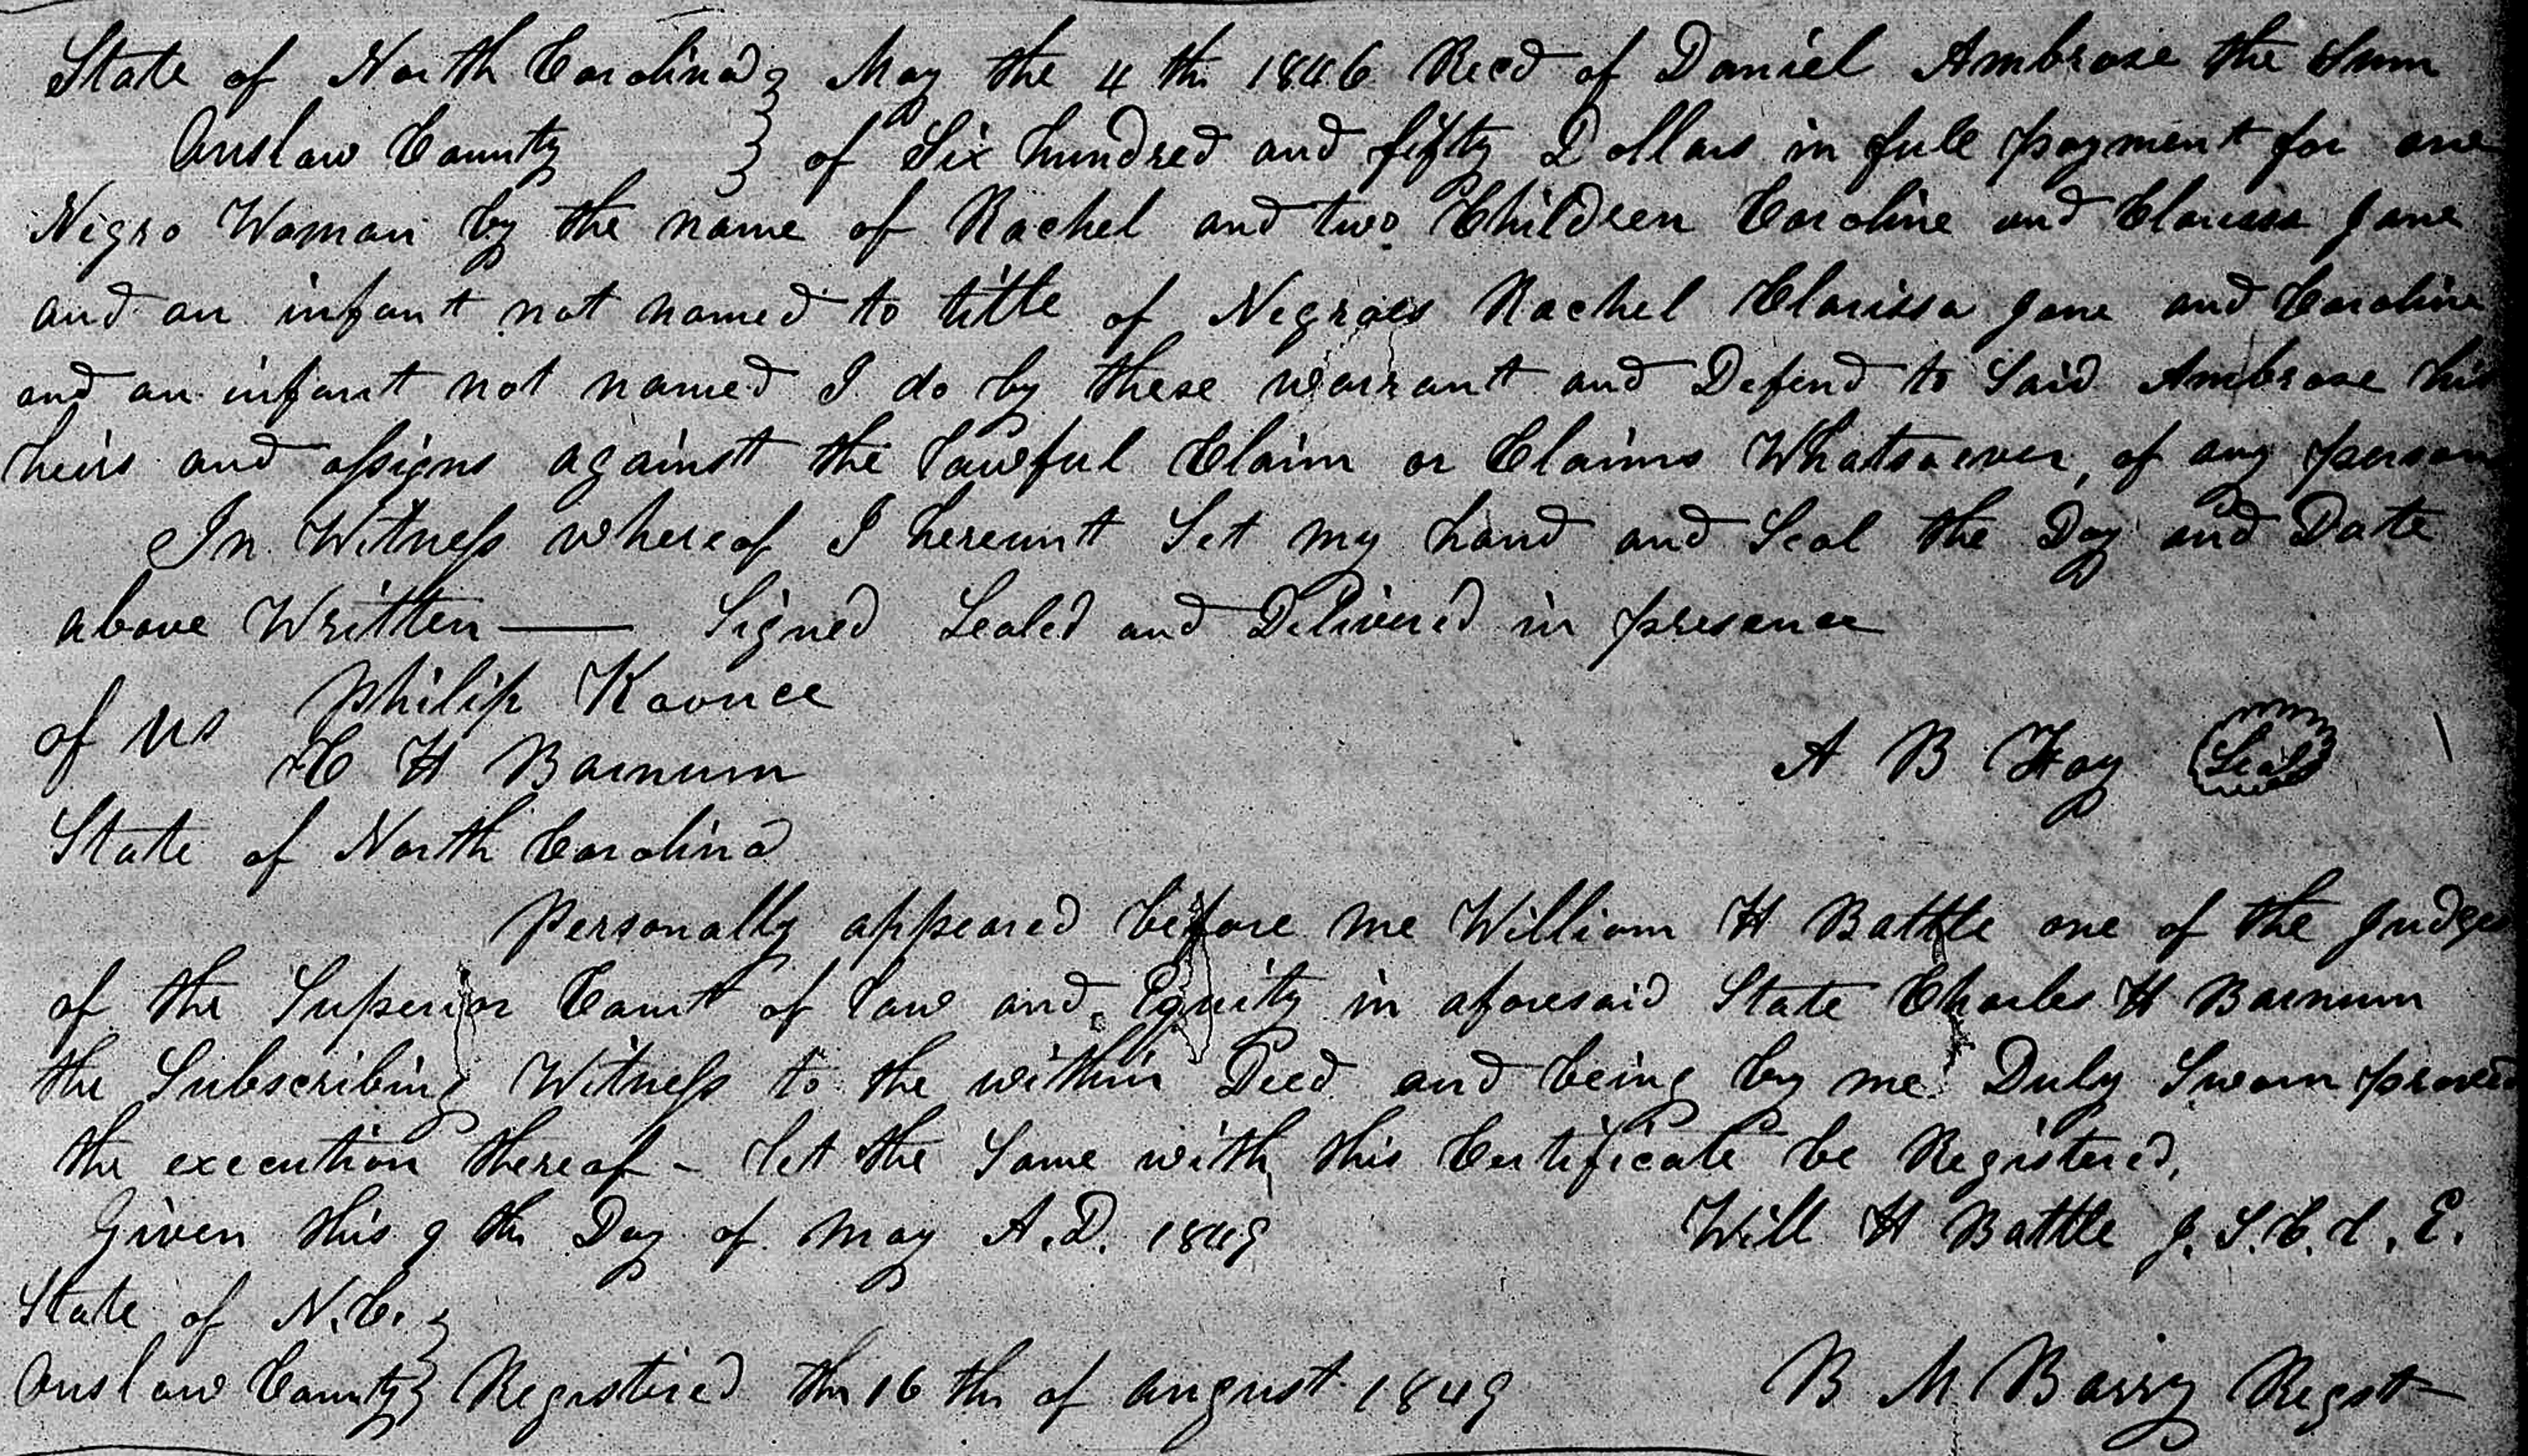 State of North Carolina } May the 4th 1846 Recd of Daniel Ambrose the Sum
Onslow County } of Six hundred and fifty Dollars in full payment for one
Negro Woman by the name of Rachel and two Children Caroline and Clarissa Jane
and an infant not named to title of Negroes Rachel Clarissa Jane and Caroline
and an infant not named I do by these warrant and Defend to Said Ambrose his
heirs and assigns against the lawful Claim or Claims Whatsoever, of any person
In Witness whereof I hereunt Set my hand and Seal the Day and Date
above Written — Signed Sealed and Delivered in presence
of us Philip Koonce
C H Barnum A B Hoy Seal
State of North Carolina
Personally appeared before me William H Battle one of the Judges
of the Superior Court of law and Equity in aforesaid State Charles H Barnum
the Subscribing Witness to the within Deed and being by me Duly Sworn proved
the execution thereof - let the Same with this Certificate be Registered,
Given this 9th Day of May A.D. 1849 Will H Battle J. S. C. L. E.
State of N.C. }
Onslow County } Registered the 16th of august 1849 B M Barry Regst